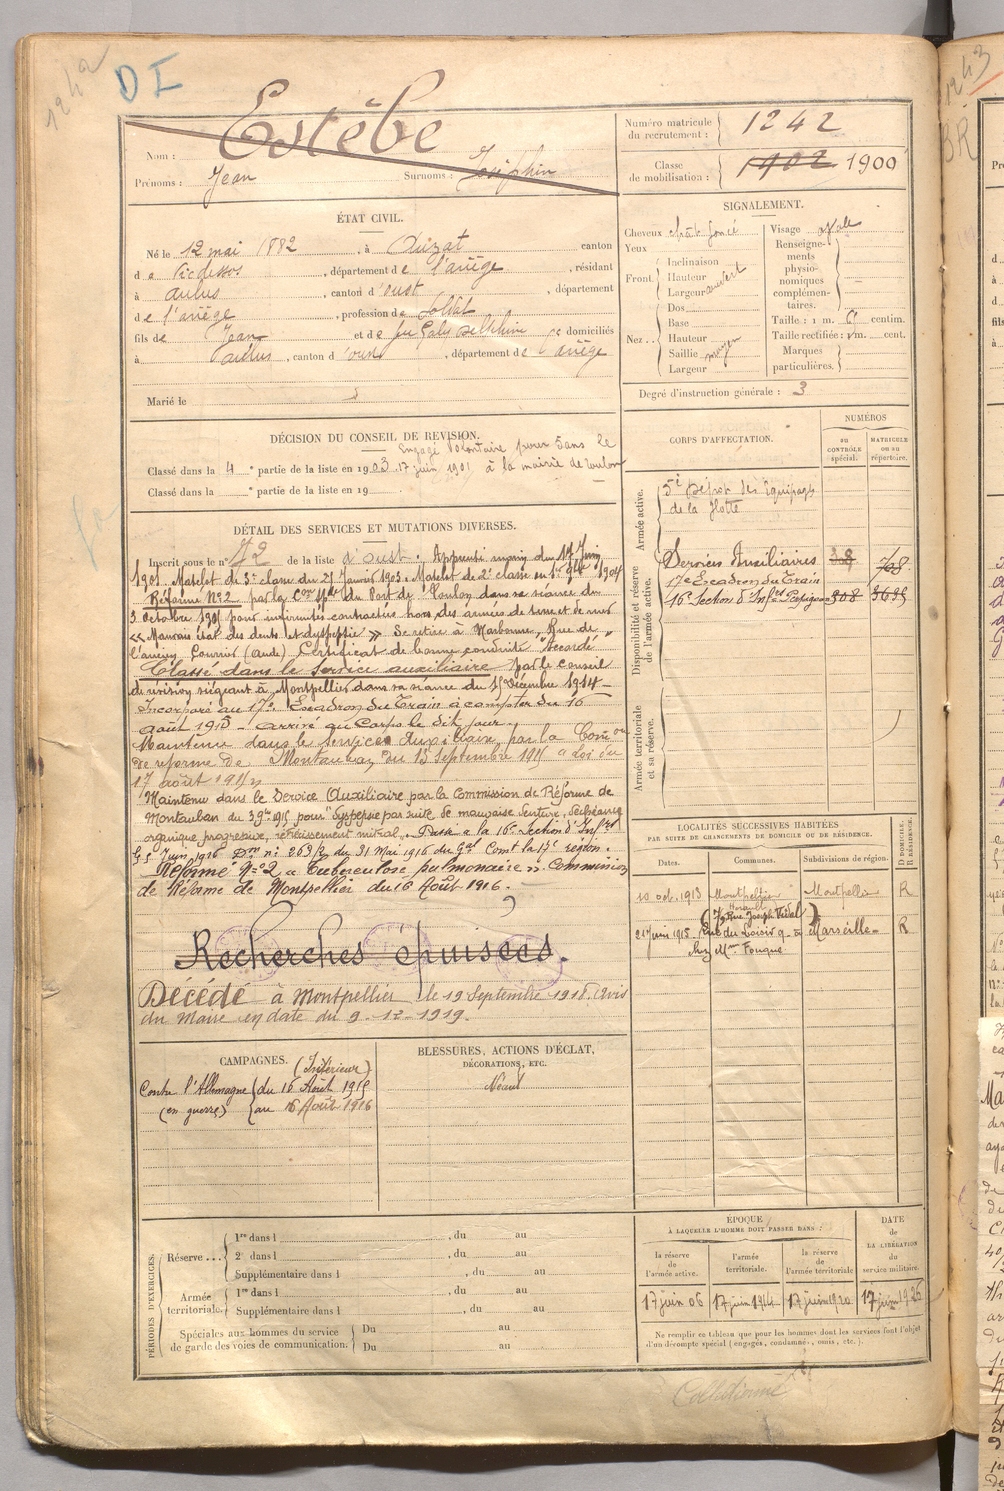 1242
D I
Nom : Estèbe
Prénoms : Jean Surnoms : Joséphin
Numéro matricule du recrutement : 1242
Classe de mobilisation : 1902 1900
ÉTAT CIVIL.
Né le 12 mai 1882, à Auzat canton
de Vicdessos, département de l'ariège, résidant
à aulus, canton d'oust, département
de l'ariège, profession de soldat
fils de Jean et de feu Galy Delphine domiciliés
à aulus, canton d'oust, département de l'ariège
Marié le
SIGNALEMENT.
Cheveux chât. foncé
Yeux
Front. Inclinaison
Hauteur
Largeur ouvert
Nez. Dos
Base
Hauteur
Saillie moyen
Largeur
Visage ovale
Renseignements physionomiques complémentaires.
Taille : 1 m. 61 centim.
Taille rectifiée : 1 m. cent.
Marques particulières.
Degré d'instruction générale : 3
DÉCISION DU CONSEIL DE RÉVISION.
Engagé Volontaire pour 5 ans le
Classé dans la 4e partie de la liste en 1903 17 juin 1901 à la mairie de Toulon
Classé dans la e partie de la liste en 19
CORPS D'AFFECTATION.
NUMÉROS
au CONTRÔLE spécial.
MATRICULE ou au répertoire.
Armée active.
5e Dépôt des Équipages
de la flotte
Disponibilité et réserve de l'armée active.
Services Auxiliaires 38 708
17e Escadron du Train
16e Section d'Infres Perpignan 308 3635
Armée territoriale et sa réserve.
DÉTAIL DES SERVICES ET MUTATIONS DIVERSES.
Inscrit sous le n° 72 de la liste d'oust. Apprenti marin du 17 Juin
1901. Matelot de 3e classe du 21 Janvier 1903. Matelot de 2e classe du 1er 1904
Réformé N°2 par la Com du Port de Toulon dans sa séance du
3 octobre pour infirmités contractées hors des armées de terre et de mer
« Mauvais état des dents et dyspepsie » Se retire à Narbonne, Rue de
l'ancien Courrier (Aude) Certificat de bonne conduite "Accordé"
Classé dans le service auxiliaire par le Conseil
de révision siégeant à Montpellier dans sa séance du 15 Décembre 1914 –
Incorporé au 17e Escadron du Train à compter du 16
août 1915 – arrivé au Corps le dit jour –
Maintenu dans le Service Auxiliaire par la Comon
de réforme de Montauban du 13 Septembre 1915 loi du
17 août 1915
Maintenu dans le Service Auxiliaire par la Commission de Réforme de
Montauban du 3 9bre 1915 pour "Dyspepsie par suite de mauvaise denture, déchéance
organique progressive, rétrécissement mitral". Passé à la 16e Section d'Infres
le 5 Juin 1916 Don n° 263/2 du 31 Mai 1916 du Gal Comt la 17e région.
Réformé N°2 "Tuberculose pulmonaire" Commission
de Réforme de Montpellier du 16 Août 1916.
Recherches épuisées.
Décédé à Montpellier le 19 Septembre 1918. Avis
du Maire en date du 9-12-1919.
LOCALITÉS SUCCESSIVES HABITÉES
PAR SUITE DE CHANGEMENTS DE DOMICILE OU DE RÉSIDENCE.
Dates. Communes. Subdivisions de région. D DOMICILE. R RÉSIDENCE.
10 oct. 1913 Montpellier Montpellier R
Hérault
(79 Rue Joseph Vidal)
21 juin 1915. Rue du Loisir 9 Marseille R
chez Mme Fouque
CAMPAGNES.
(Intérieur)
Contre l'Allemagne du 16 Août 1915
(en guerre) au 16 Août 1916
BLESSURES, ACTIONS D'ÉCLAT,
DÉCORATIONS, ETC.
Néant
PÉRIODES D'EXERCICES.
Réserve... 1re dans l , du au
2e dans l , du au
Supplémentaire dans l , du au
Armée territoriale. 1re dans l , du au
Supplémentaire dans l , du au
Spéciales aux hommes du service de garde des voies de communication. Du au
Du au
ÉPOQUE
À LAQUELLE L'HOMME DOIT PASSER DANS :
la réserve de l'armée active.
l'armée territoriale.
la réserve de l'armée territoriale
DATE de LA LIBÉRATION du service militaire.
17 juin 06 17 juin 1914 17 juin 1920 17 juin 1926
Ne remplir ce tableau que pour les hommes dont les services font l'objet
d'un décompte spécial (engagés, condamnés, omis, etc.).
Collationné
1243
BR